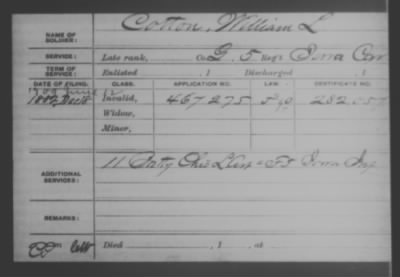 NAME OF SOLDIER: Cotton, William L
SERVICE: Late rank, Co. G, 5 Reg't Iowa Cav
TERM OF SERVICE: Enlisted , 1 Discharged , 1
DATE OF FILING. CLASS. APPLICATION NO. LAW. CERTIFICATE NO.
1882 Invalid, 467275 282057
Widow,
Minor,
ADDITIONAL SERVICES: 11 Batty Ohio L Iowa Inf
REMARKS:
Died , 1 , at